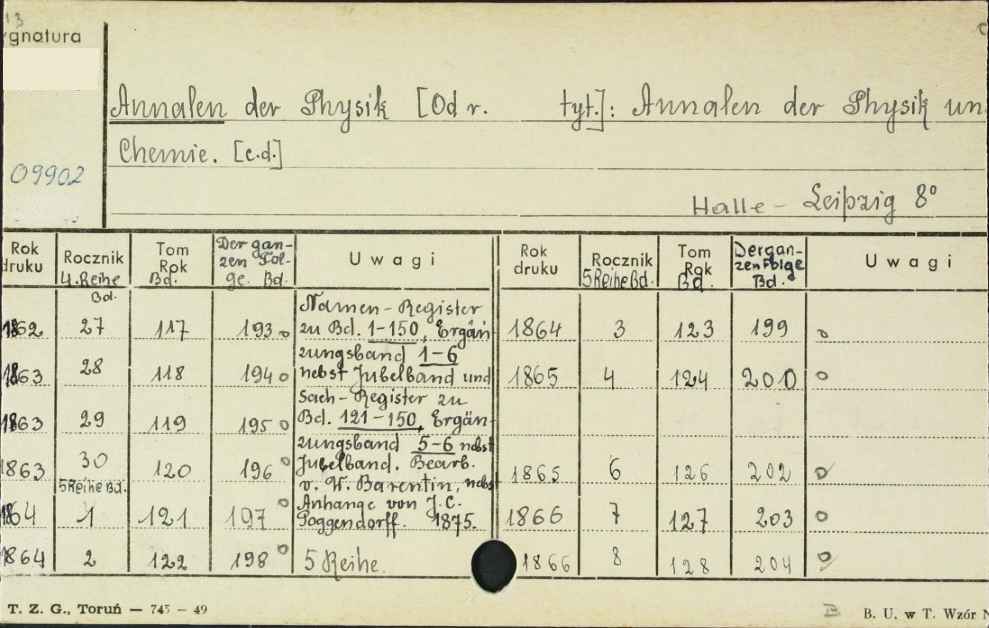 13
ygnatura
Annalen der Physik [Od r. tyt.]: Annalen der Physik un
Chemie. [c.d.]
09902
Halle - Leipzig 8°
Rok druku Rocznik 4. Reihe Bd. Tom Rok Bd. Der ganzen Folge. Bd. Uwagi Rok druku Rocznik 5 Reihe Bd. Tom Rok Bd. Der ganzen Folge Bd. Uwagi
1862 27 117 193 o 1864 3 123 199 o
1863 28 118 194 o 1865 4 124 200 o
1863 29 119 195 o
1863 30 120 196 o 1865 6 126 202 o
5 Reihe Bd.
1864 1 121 197 o 1866 7 127 203 o
1864 2 122 198 o 1866 8 128 204 o
Namen-Register
zu Bd. 1-150, Ergän-
zungsband 1-6
nebst Jubelband und
Sach-Register zu
Bd. 121-150, Ergän-
zungsband 5-6 nebst
Jubelband. Bearb.
v. W. Barentin, nebst
Anhange von J. C.
Poggendorff. 1875.
5 Reihe.
T. Z. G., Toruń — 745 — 49
B. U. w T. Wzór N